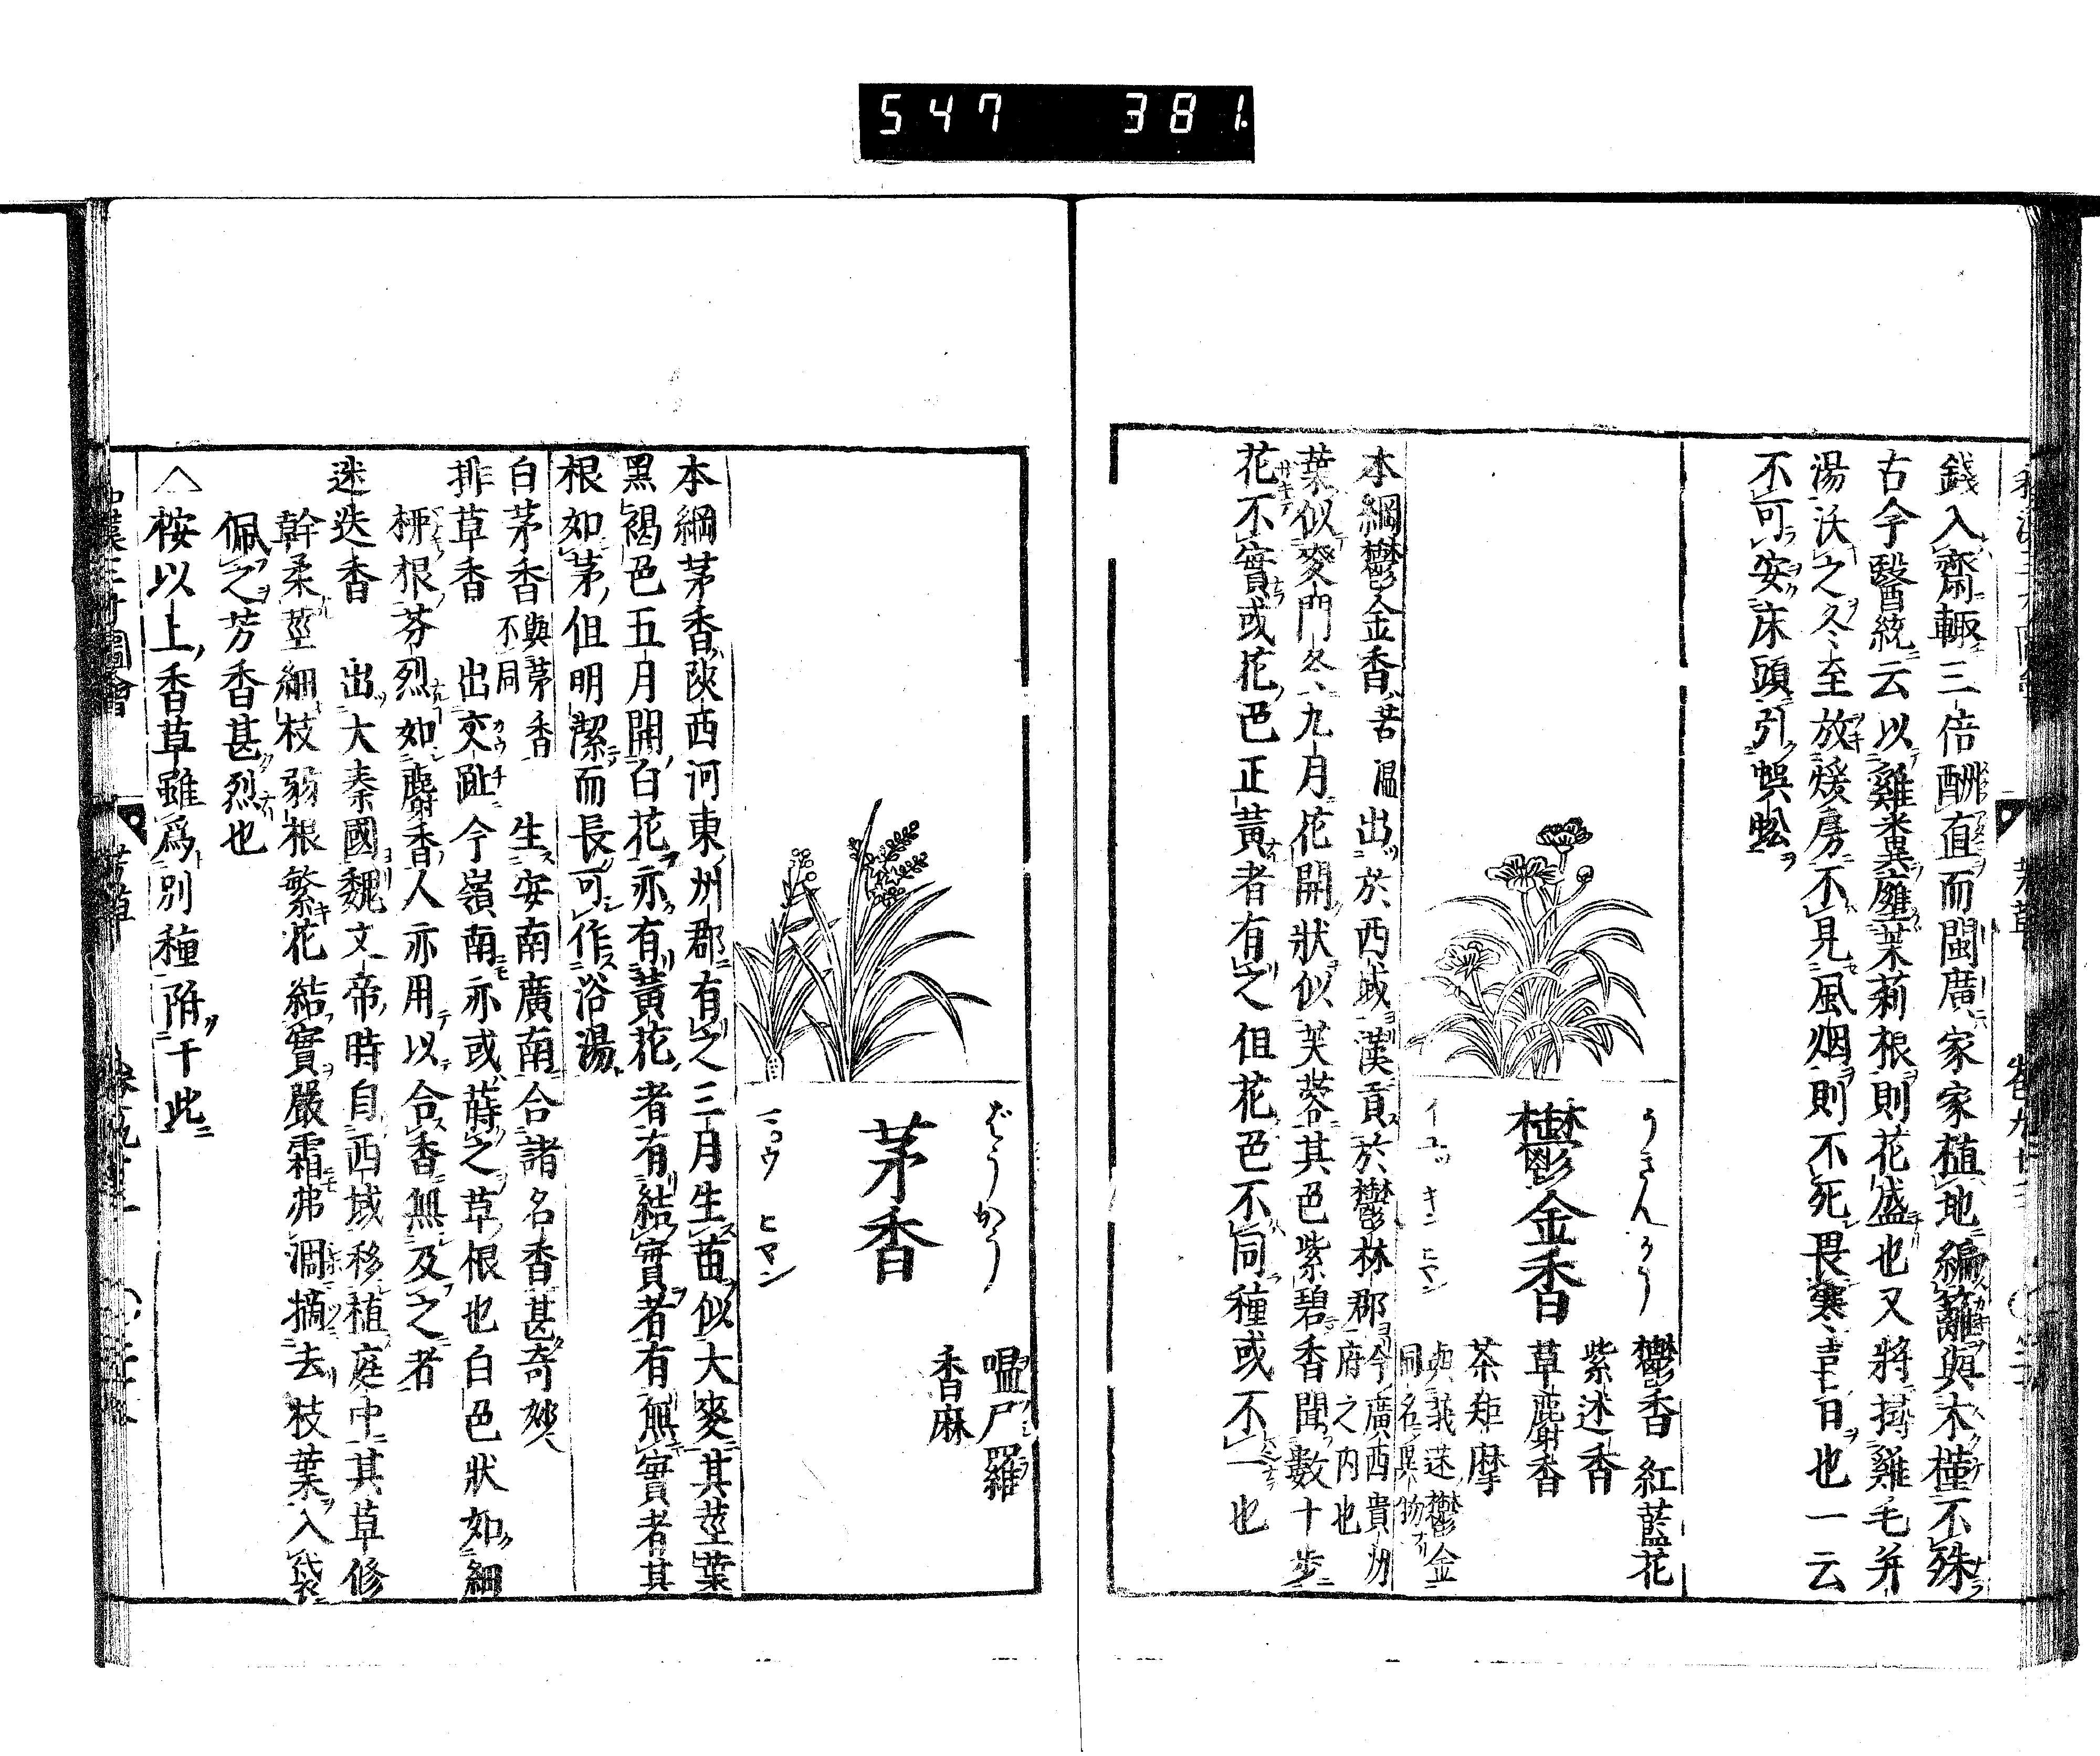 547 381
錢入齋輙三倍酬直而閩廣家家植地編籬與木槿不殊
古今醫統云以雞糞壅茉莉根則花盛也又將撏雞毛并
湯沃之冬至放煖房不見風烟則不死畏寒喜日也一云
不可安床頭引蜈蚣
うきんかう
鬱金香
イユツ キン ヒヤン
鬱香 紅藍花
紫述香
草麝香
茶矩摩
與莪蒁鬱金
同名異物
本綱鬱金香苦温出於西域漢貢於鬱林郡今廣西貴州府之内也
葉似麥門冬九月花開狀似芙蓉其色紫碧香聞數十步
花不實或花色正黃者有之但花色不同種或不一也
ばうかう
茅香
ヒヤン
嗢尸羅
香麻
本綱茅香陝西河東州郡有之三月生苗似大麥其莖葉
黑褐色五月開白花亦有黃花者有結實者有無實者其
根如茅但明潔而長可作浴湯
白茅香 與茅香不同 生安南廣南合諸名香甚奇妙
排草香 出交趾今嶺南亦或蒔之草根也白色狀如細
栁根芬烈如麝香人亦用以合香無及之者
迷迭香 出大秦國魏文帝時自西域移植庭中其草修
幹柔莖細枝弱根繁花結實嚴霜弗凋摘去枝葉入袋
佩之芳香甚烈也
△桉以上香草雖爲別種附于此